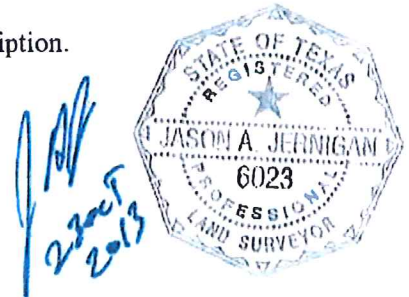 iption.
STATE OF TEXAS
REGISTERED
JASON A. JERNIGAN
6023
PROFESSIONAL
LAND SURVEYOR
23 OCT
2013